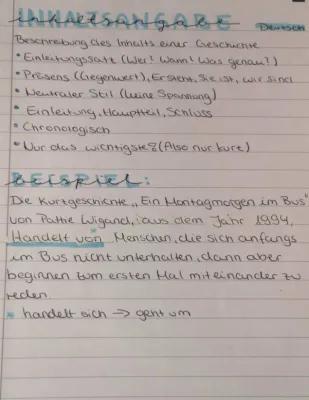 INHALTSANGABE
Deutsch
Beschreibung des Inhalts einer Geschichte
• Einleitungssatz (Wer? Wann? Was genau?)
• Präsens (Gegenwart), Er steht, Sie ist, wir sind
• Neutraler Stil (keine Spannung)
• Einleitung, Hauptteil, Schluss
• Chronologisch
• Nur das wichtigste (Also nur kurz)
BEISPIEL:
Die Kurzgeschichte „Ein Montagmorgen im Bus"
von Pathe Wigand, aus dem Jahr 1994,
Handelt von Menschen, die sich anfangs
im Bus nicht unterhalten, dann aber
beginnen zum ersten Mal miteinander zu
reden.
* handelt sich → geht um